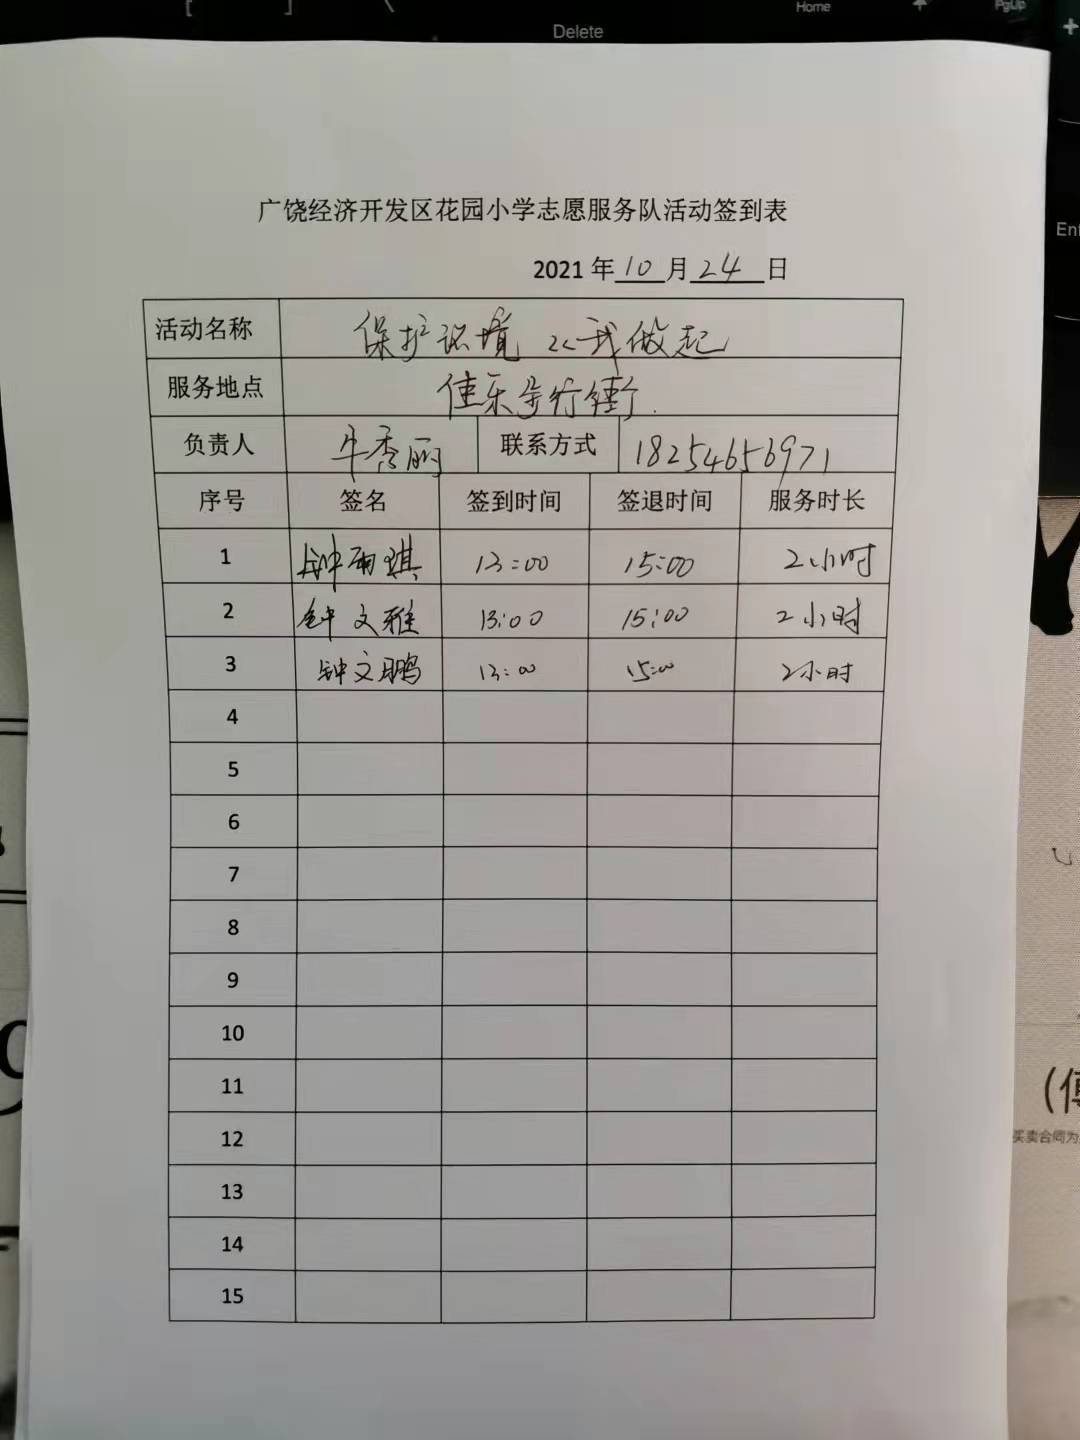 [
]
\
Home
PgUp
Delete
+
广饶经济开发区花园小学志愿服务队活动签到表
2021 年 10 月 24 日
活动名称 保护环境 从我做起
服务地点 佳乐步行街
负责人 牛秀丽 联系方式 18254656971
序号 签名 签到时间 签退时间 服务时长
1 钟雨琪 13:00 15:00 2小时
2 钟文雅 13:00 15:00 2小时
3 钟文鹏 13:00 15:00 2小时
4
5
6
7
8
9
10
11
12
13
14
15
买卖合同为